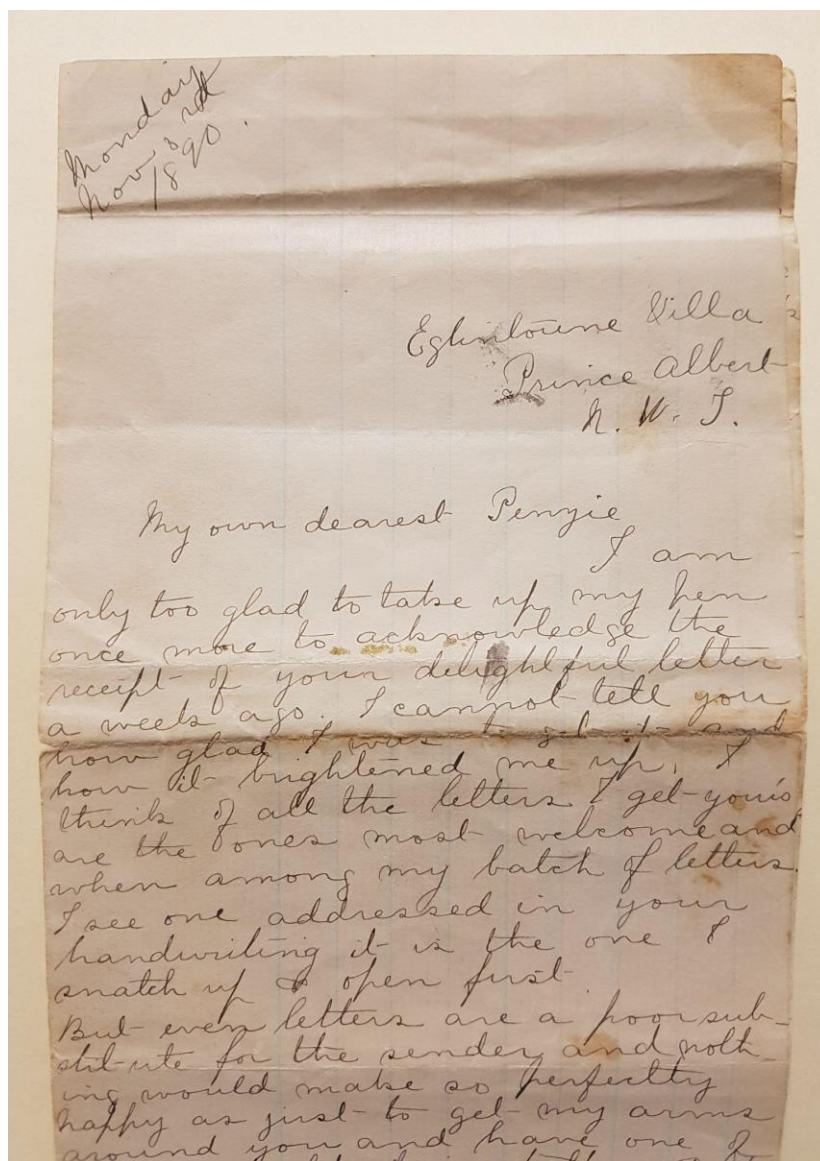 Monday
Nov 3rd
1890.
Eglintoune Villa
Prince Albert
N. W. T.
My own dearest Penzie
I am
only too glad to take up my pen
once more to acknowledge the
receipt of your delightful letter
a week ago. I cannot tell you
how glad I was to get it and
how it brightened me up. I
think of all the letters I get your's
are the ones most welcome and
when among my batch of letters
I see one addressed in your
handwriting it is the one I
snatch up & open first
But even letters are a poor sub-
stitute for the sender and noth-
ing would make so perfectly
happy as just to get my arms
around you and have one of